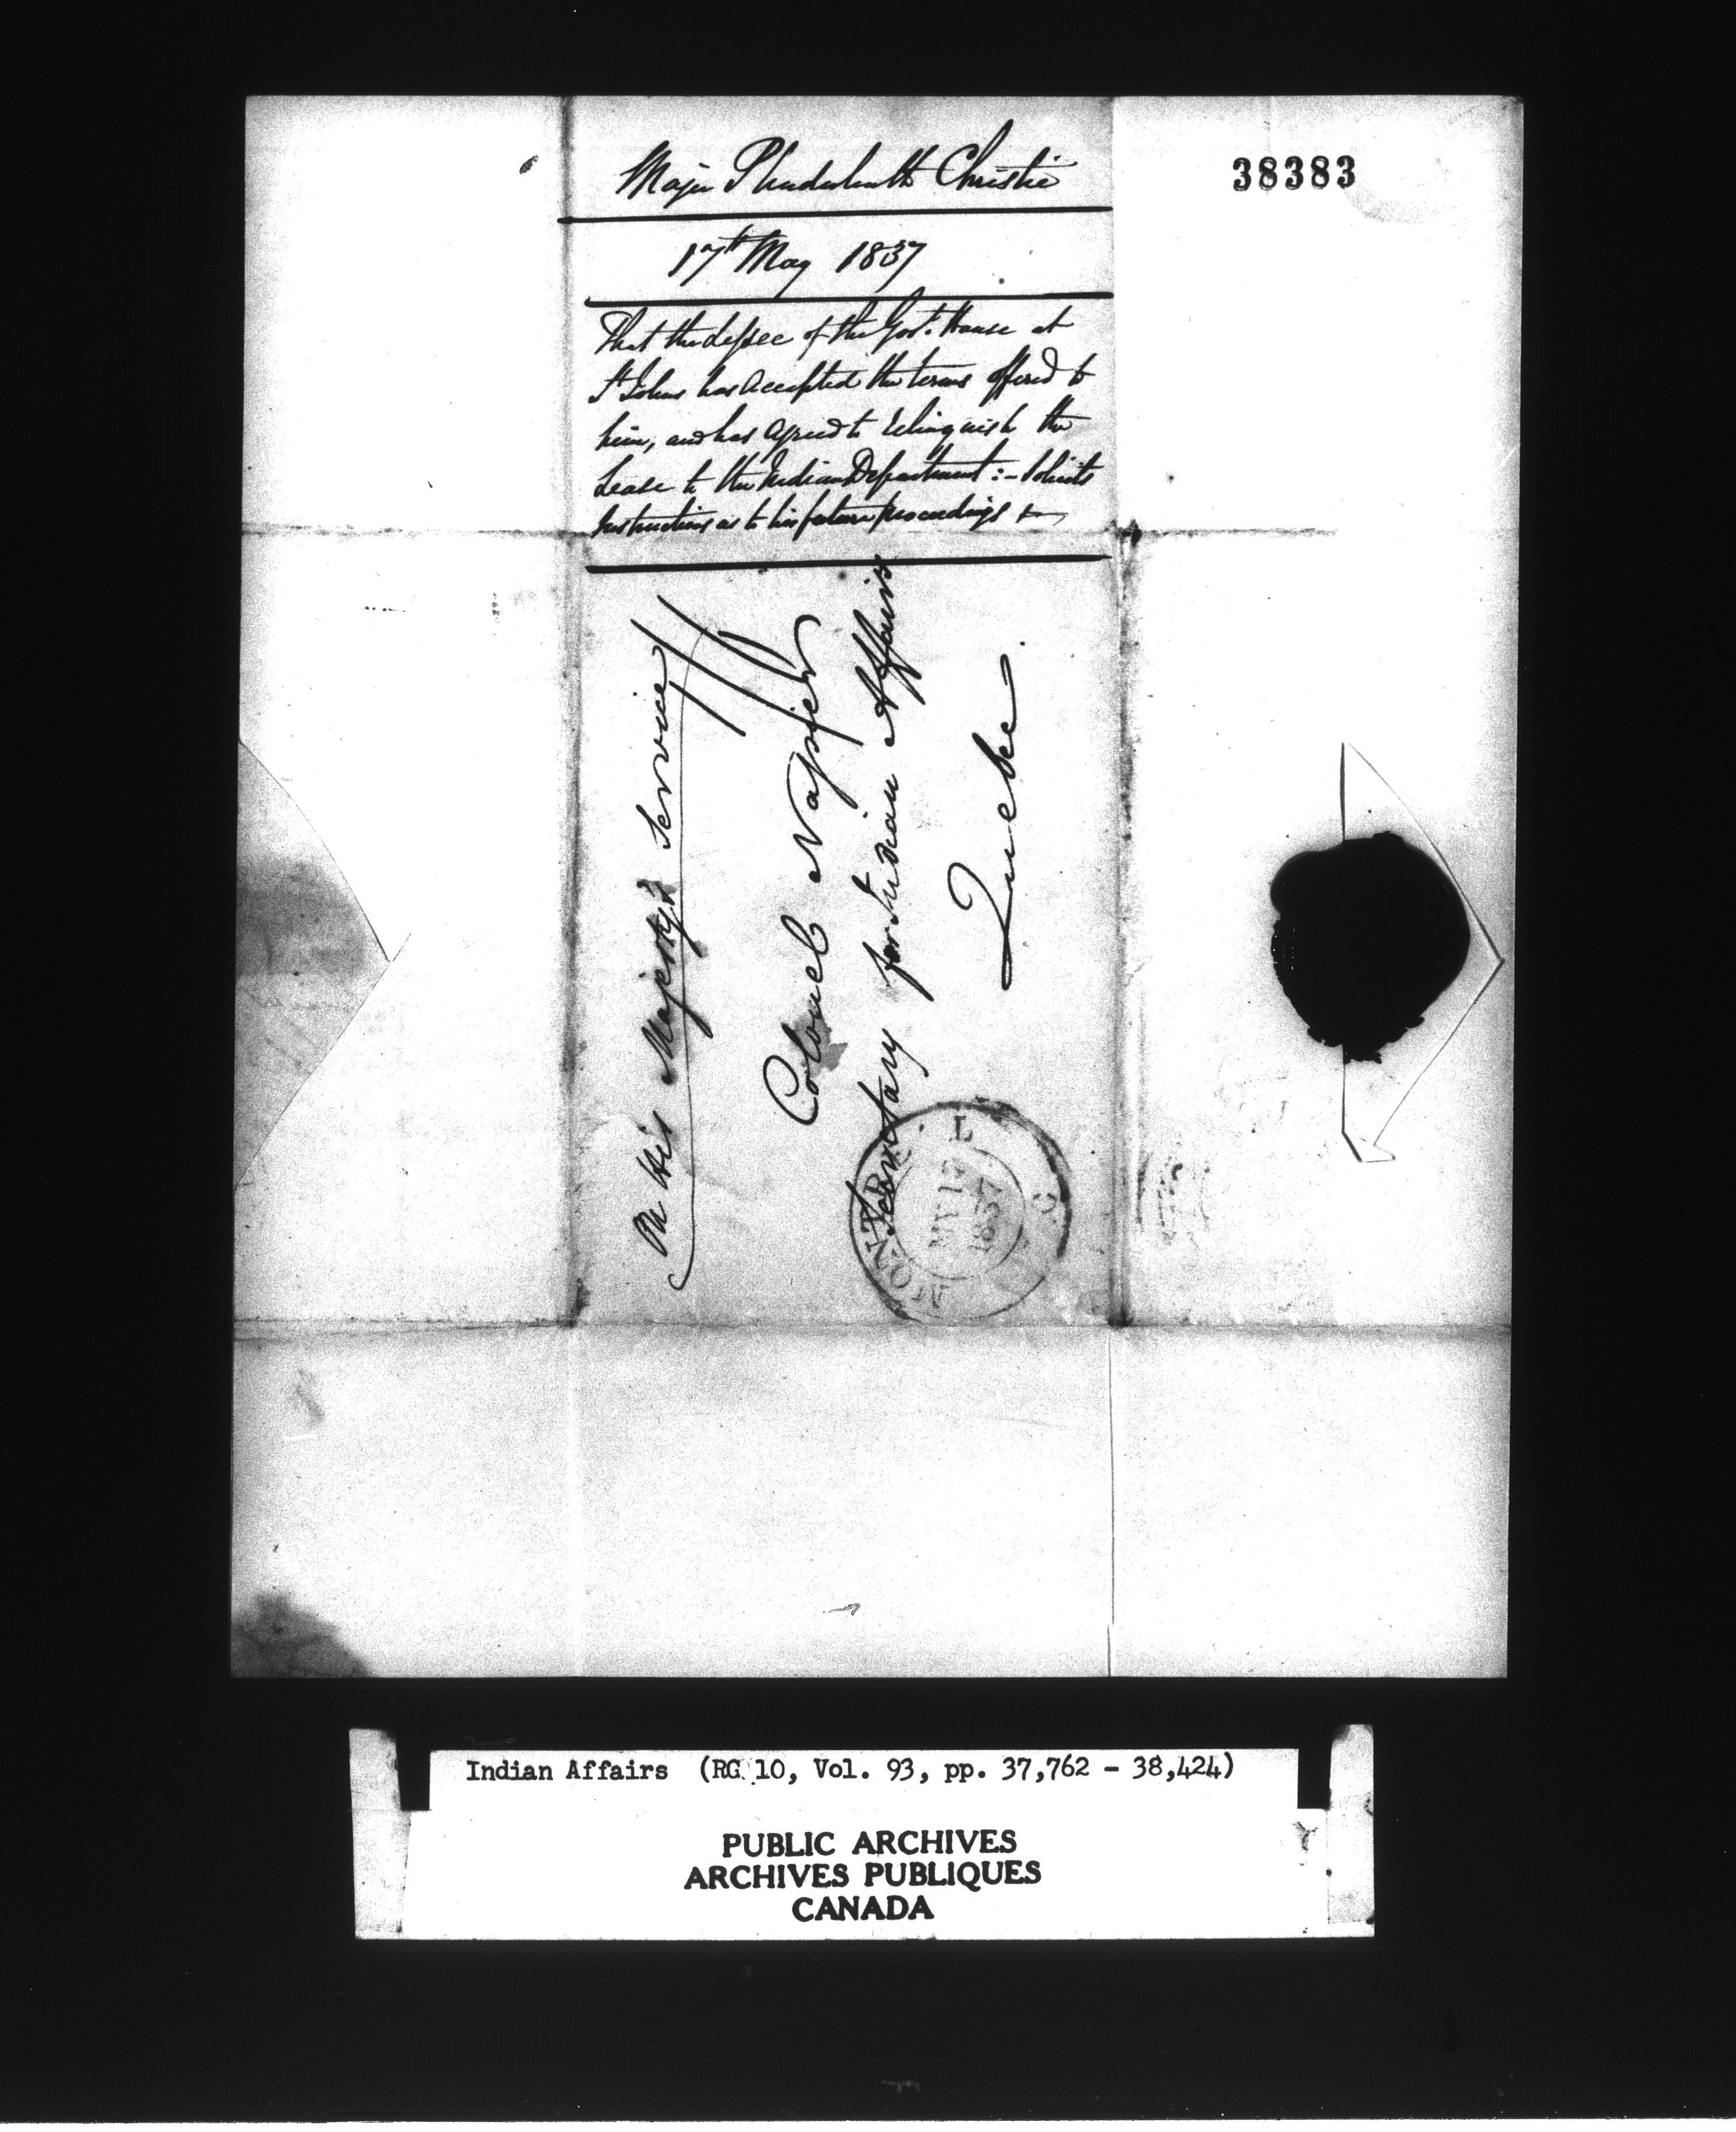 38383
Major Plenderleath Christie
17th May 1837
That the Lessee of the Govt. House at
St Johns has accepted the terms offered to
him, and has agreed to relinquish the
Lease to the Indian Department :- Solicits
Instructions as to his future proceedings
On His Majesty's Service
Colonel Napier
Secretary for Indian Affairs
Quebec
MONTREAL
MY
1837
L.C
Indian Affairs (RG 10, Vol. 93, pp. 37,762 - 38,424)
PUBLIC ARCHIVES
ARCHIVES PUBLIQUES
CANADA